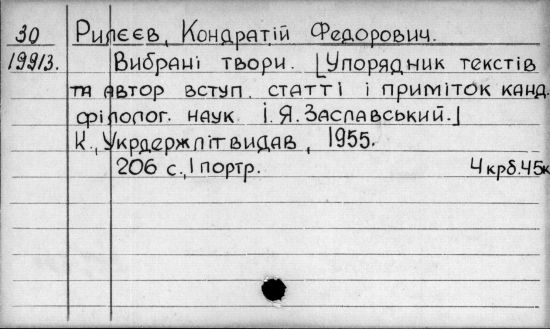 30 Рилєєв, Кондратій Федорович.
19913. Вибрані твори. [Упорядник текстів
та автор вступ. статті і приміток канд.
філолог. наук І. Я. Заславський.]
К., Укрдержлітвидав, 1955.
206 с., 1 портр. 4 крб. 45к